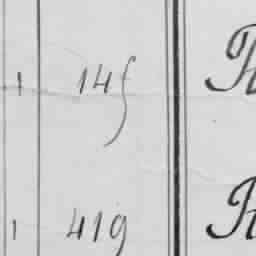 1 145
1 419